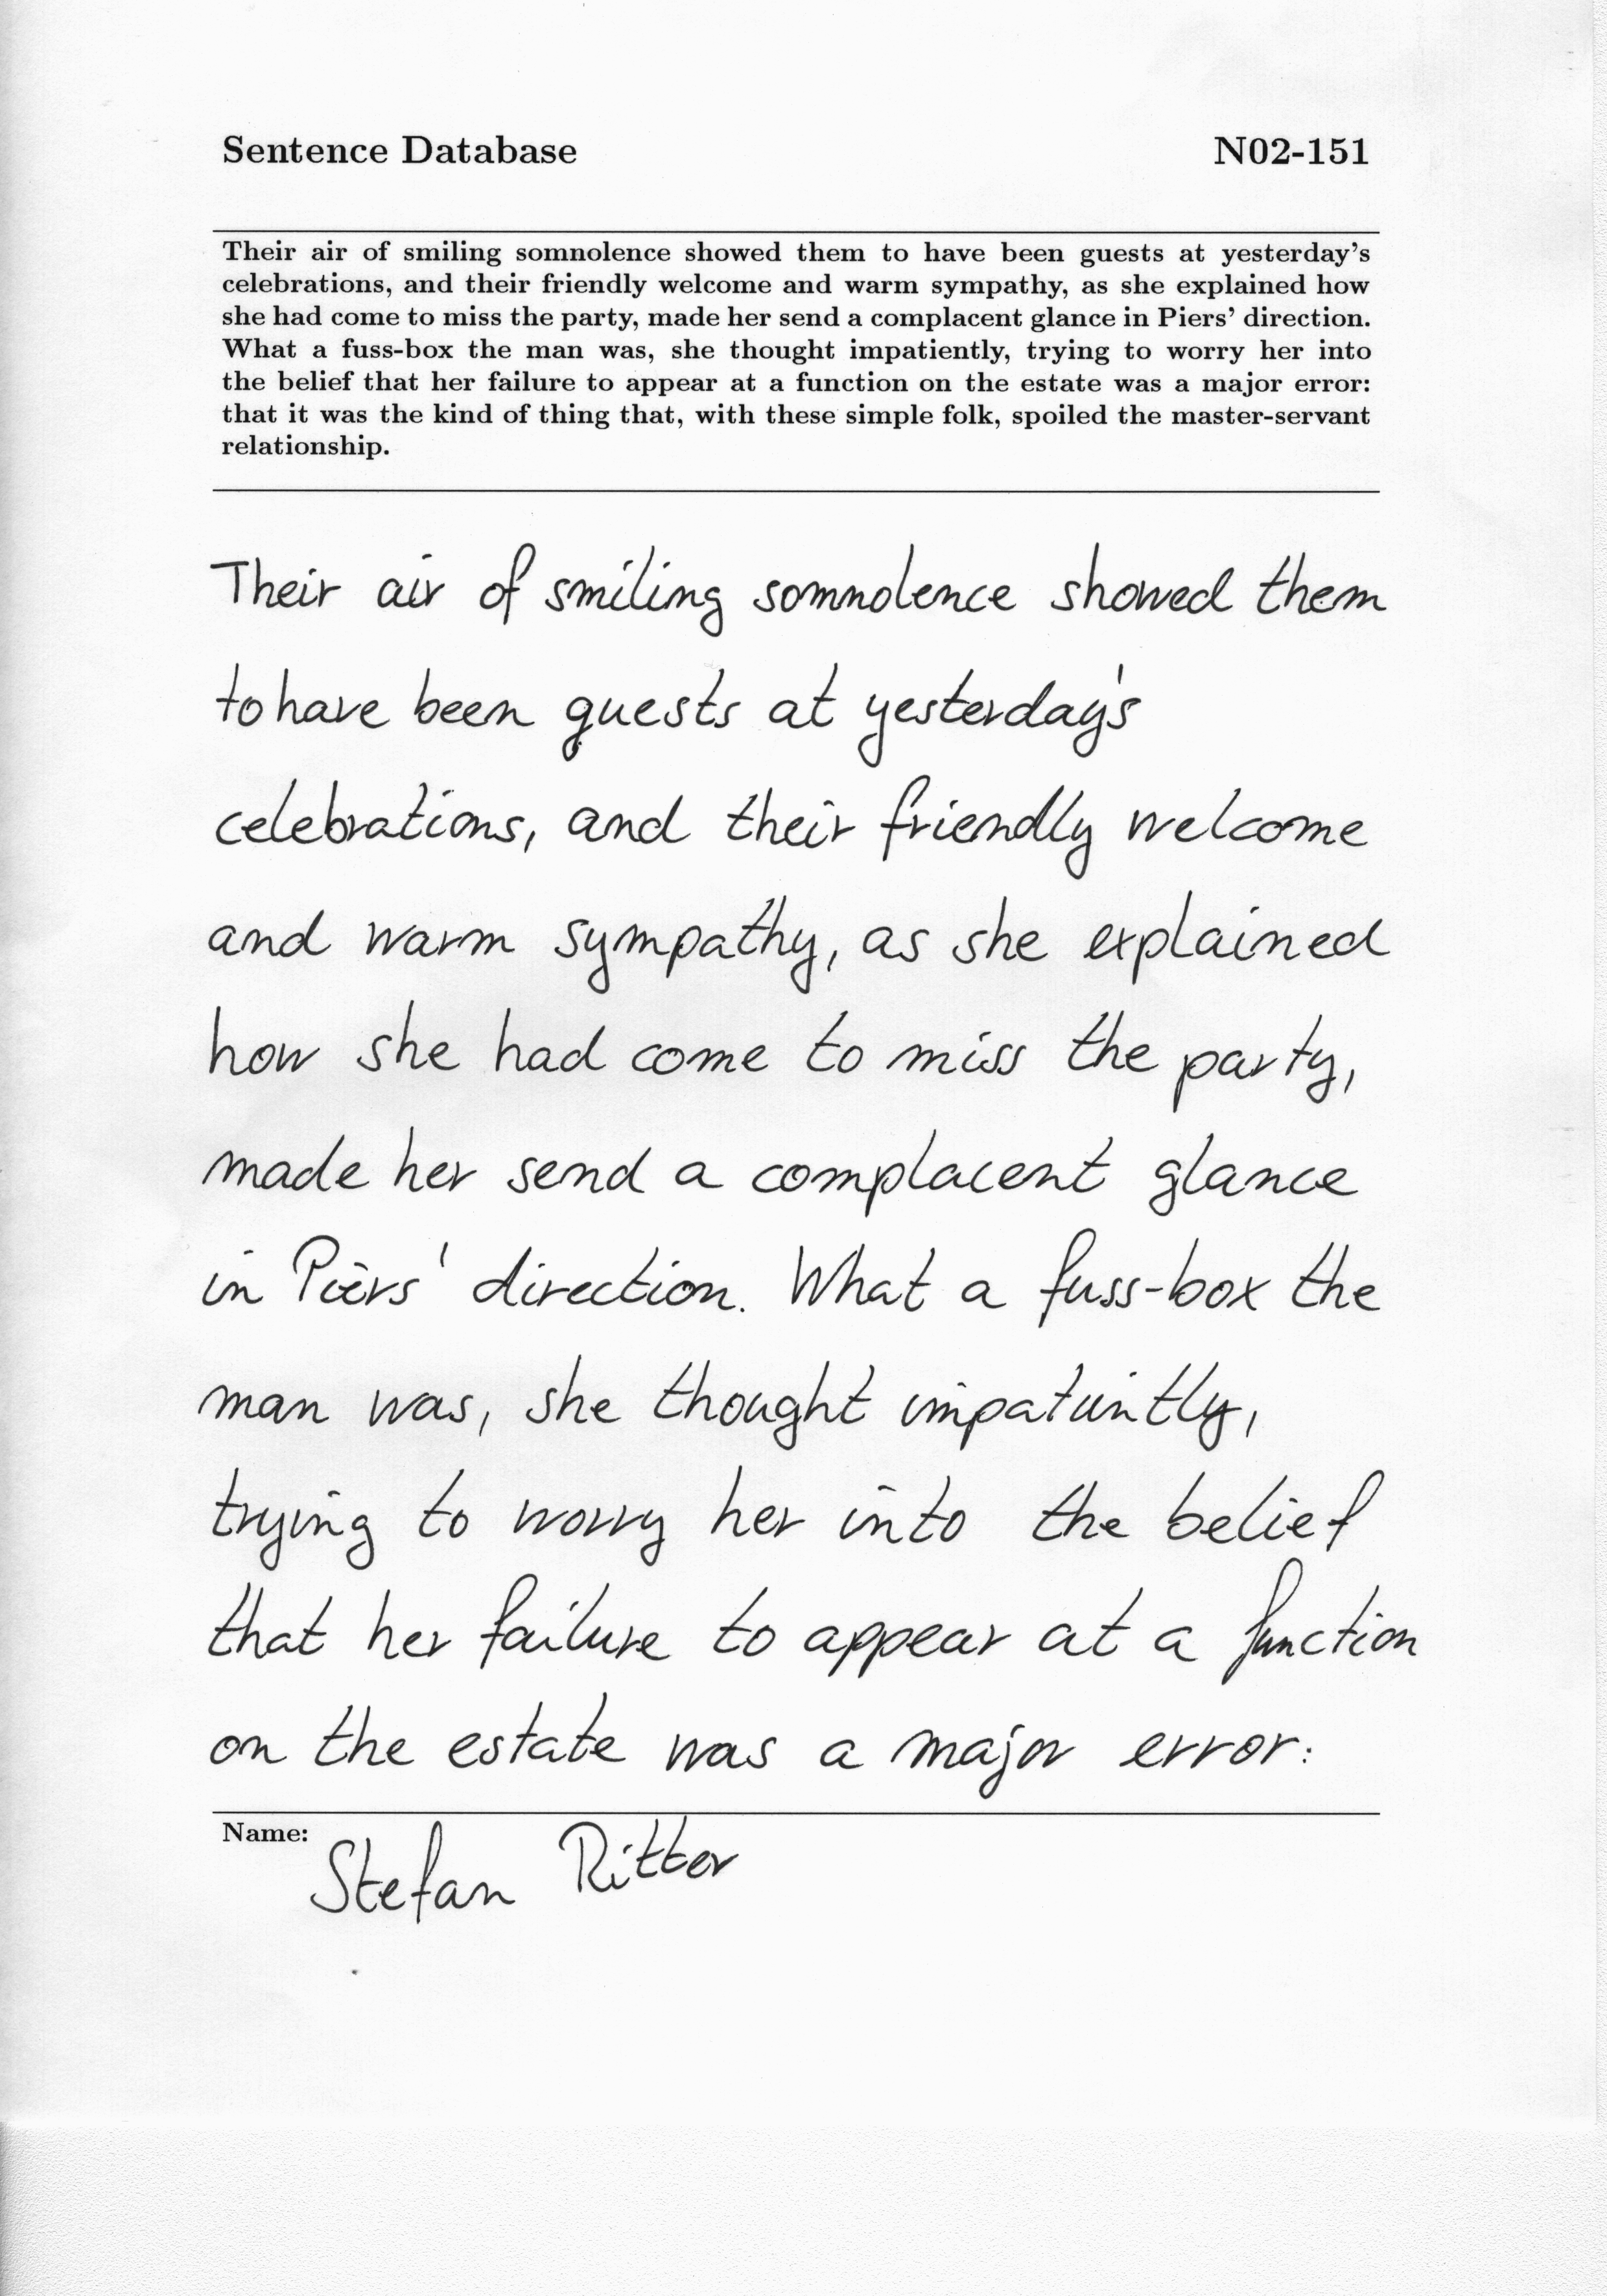 Sentence Database N02-151
Their air of smiling somnolence showed them to have been guests at yesterday's
celebrations, and their friendly welcome and warm sympathy, as she explained how
she had come to miss the party, made her send a complacent glance in Piers' direction.
What a fuss-box the man was, she thought impatiently, trying to worry her into
the belief that her failure to appear at a function on the estate was a major error:
that it was the kind of thing that, with these simple folk, spoiled the master-servant
relationship.
Their air of smiling somnolence showed them
to have been guests at yesterday's
celebrations, and their friendly welcome
and warm sympathy, as she explained
how she had come to miss the party,
made her send a complacent glance
in Piers' direction. What a fuss-box the
man was, she thought impatiently,
trying to worry her into the belief
that her failure to appear at a function
on the estate was a major error:
Name: Stefan Ritter